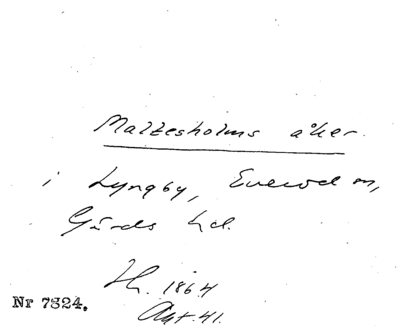 Maltesholms åker.
i Lyngby, Everöd m,
Gärds hd.
Hh. 1864
Ant. 41.
Nr 7324.